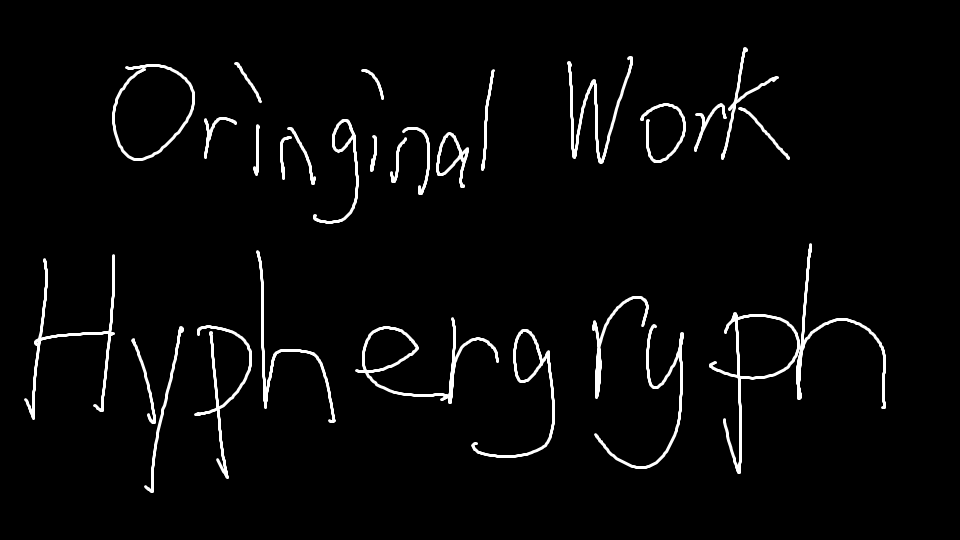 Oringinal Work
Hyphergryph